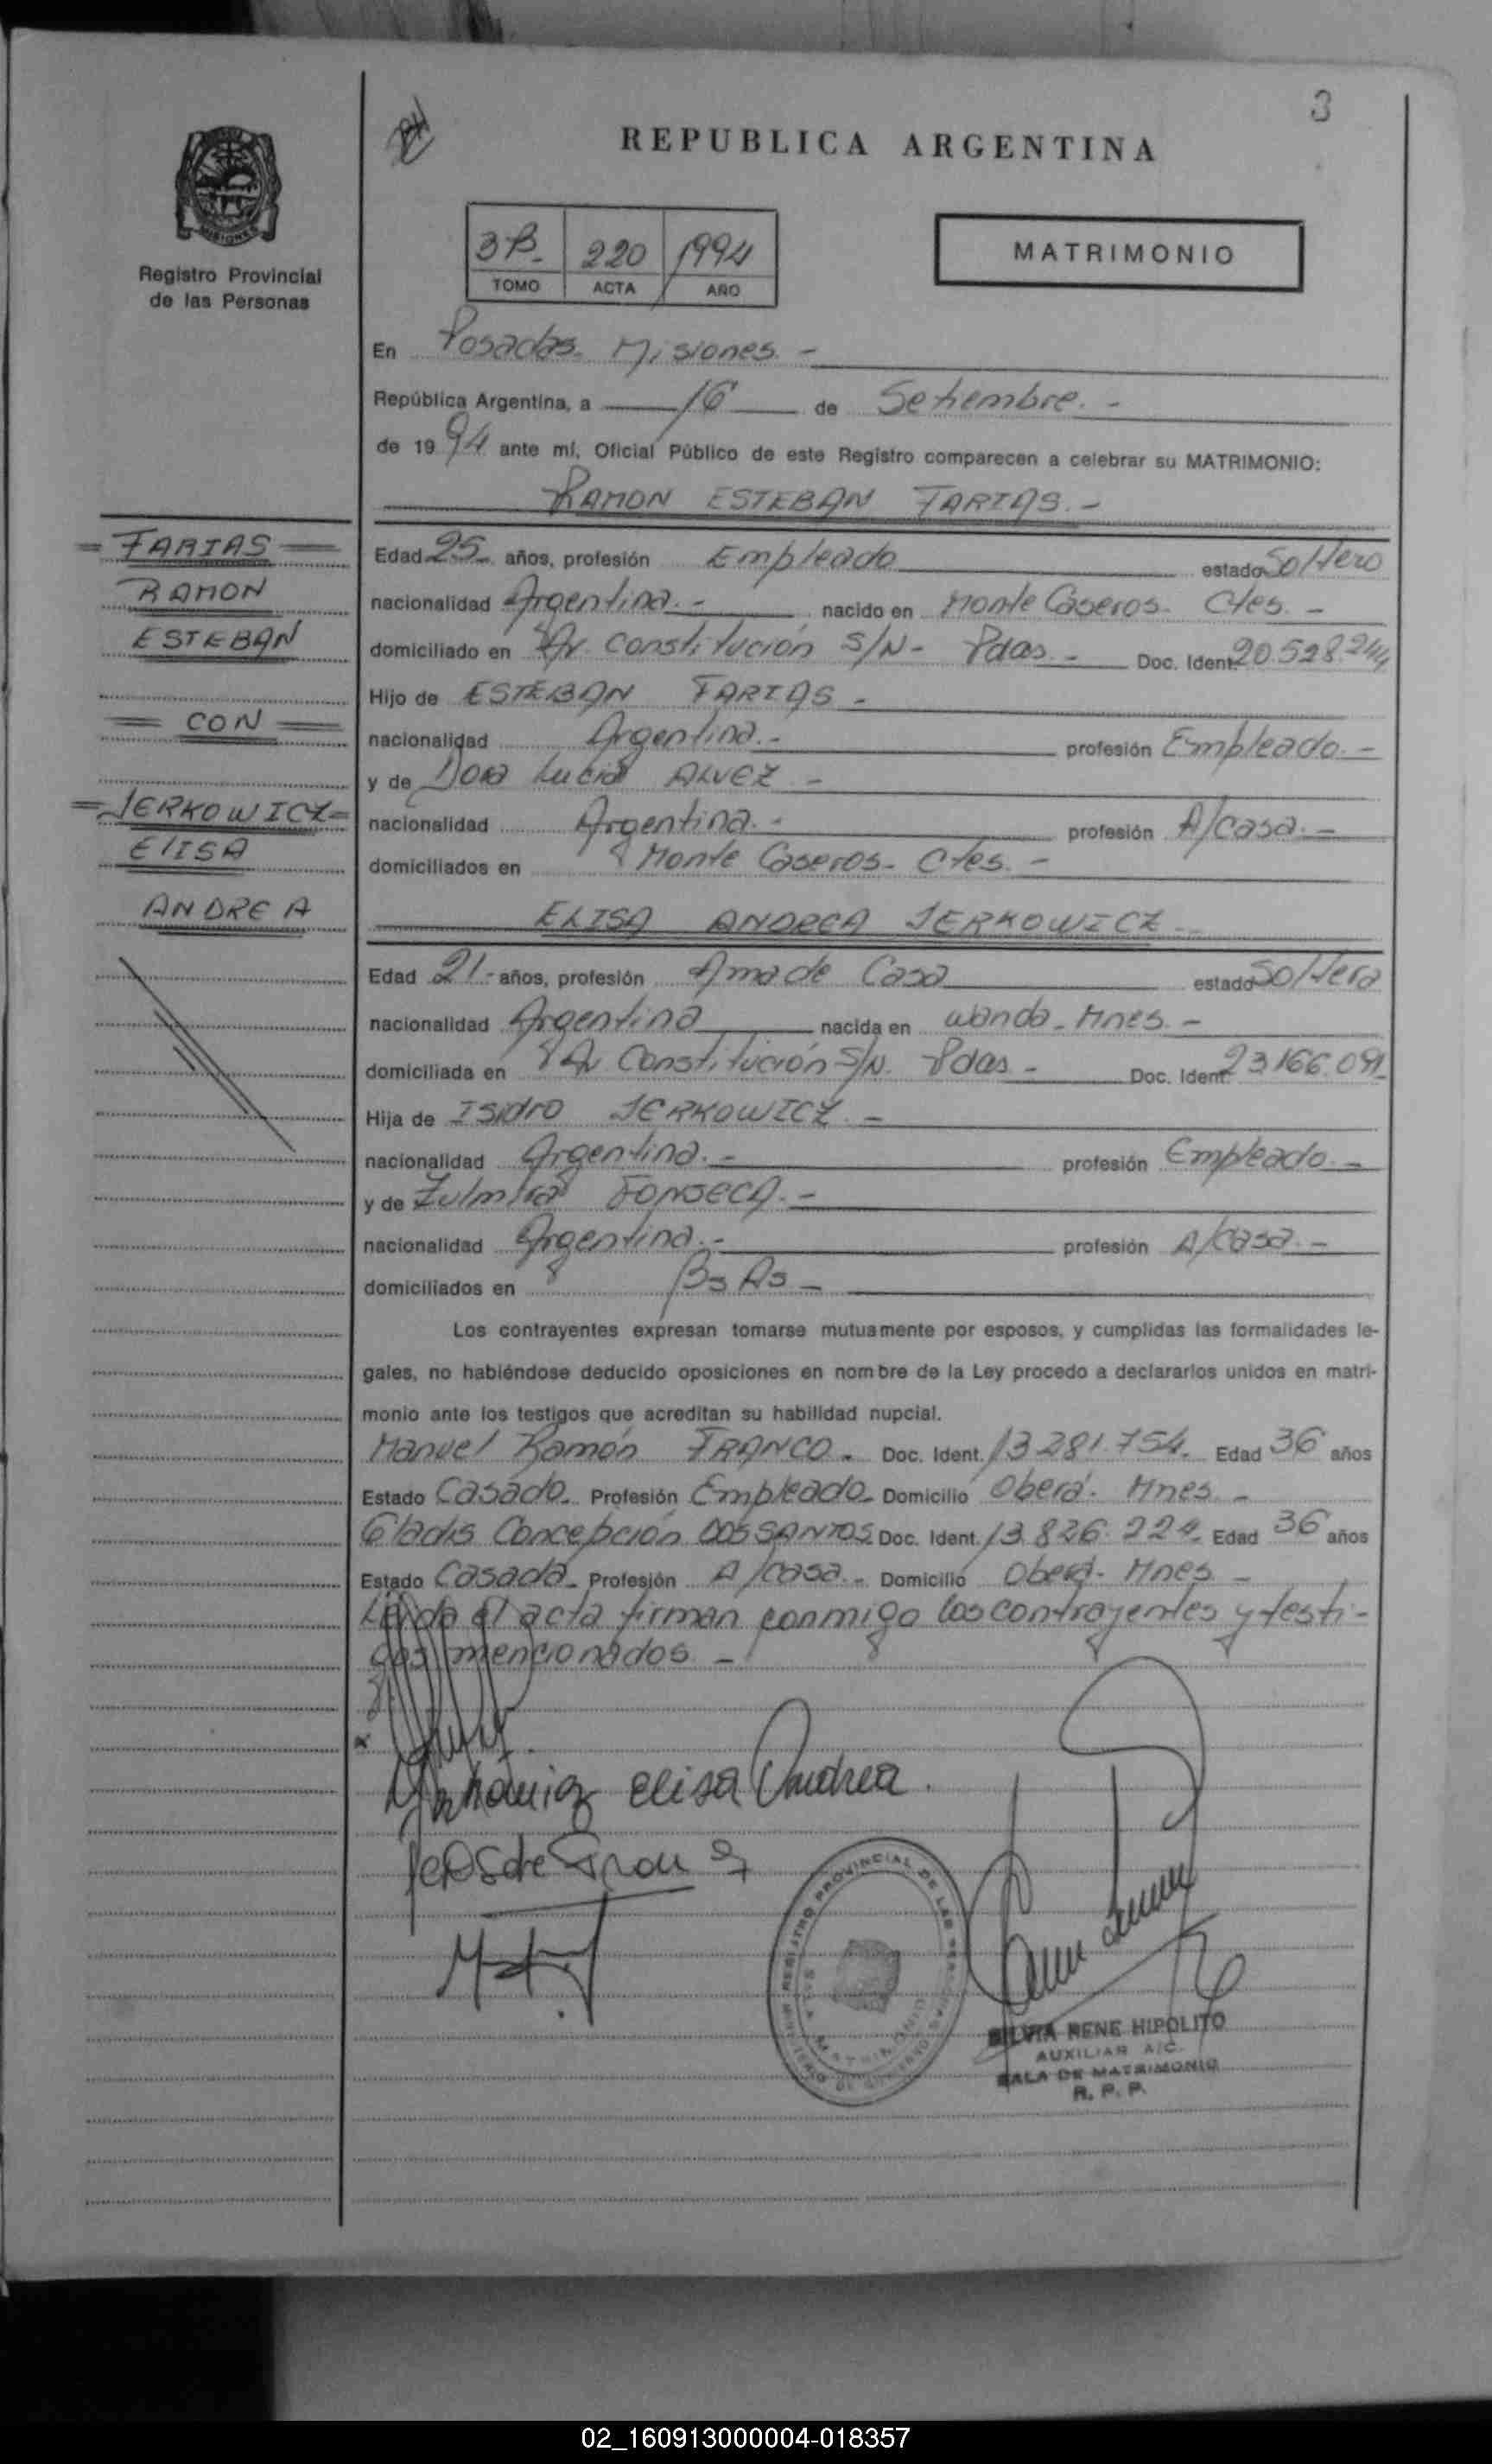 3
REPUBLICA ARGENTINA
MISIONES
Registro Provincial
de las Personas
3B- 220 1994
TOMO ACTA AÑO
MATRIMONIO
En Posadas. Misiones. -
República Argentina, a 16 de Setiembre. -
de 1994 ante mí, Oficial Público de este Registro comparecen a celebrar su MATRIMONIO:
RAMON ESTEBAN FARIAS. -
= FARIAS =
RAMON
ESTEBAN
= CON =
= JERKOWICZ =
ELISA
ANDREA
Edad 25- años, profesión Empleado estado Soltero
nacionalidad Argentina. - nacido en Monte Caseros- Ctes. -
domiciliado en Av. Constitución S/N- Pdas. - Doc. Ident. 20.528.244
Hijo de ESTEBAN FARIAS -
nacionalidad Argentina. - profesión Empleado. -
y de Dora Lucia ALVEZ -
nacionalidad Argentina. - profesión A/casa. -
domiciliados en Monte Caseros- Ctes. -
ELISA ANDREA JERKOWICZ
Edad 21- años, profesión Ama de Casa estado Soltera
nacionalidad Argentina nacida en Wanda- Mnes. -
domiciliada en Av Constitución S/N. Pdas - Doc. Ident. 23166.091
Hija de ISIDRO JERKOWICZ. -
nacionalidad Argentina. - profesión Empleado. -
y de Zulmira FONSECA. -
nacionalidad Argentina. - profesión A/casa. -
domiciliados en Bs As -
Los contrayentes expresan tomarse mutuamente por esposos, y cumplidas las formalidades le-
gales, no habiéndose deducido oposiciones en nombre de la Ley procedo a declararlos unidos en matri-
monio ante los testigos que acreditan su habilidad nupcial.
Manuel Ramón FRANCO. Doc. Ident. 13.281.754. Edad 36 años
Estado Casado. Profesión Empleado. Domicilio Oberá. Mnes -
Gladis Concepción DOS SANTOS Doc. Ident. 13.826.224. Edad 36 años
Estado Casada- Profesión A/casa. - Domicilio Oberá- Mnes -
Leída el acta firman conmigo los contrayentes y testi-
gos mencionados. -
elisa Andrea.
REGISTRO PROVINCIAL DE LAS PERSONAS
MATRIMONIO
SILVIA RENE HIPOLITO
AUXILIAR A/C.
SALA DE MATRIMONIO
R. P. P.
02_160913000004-018357